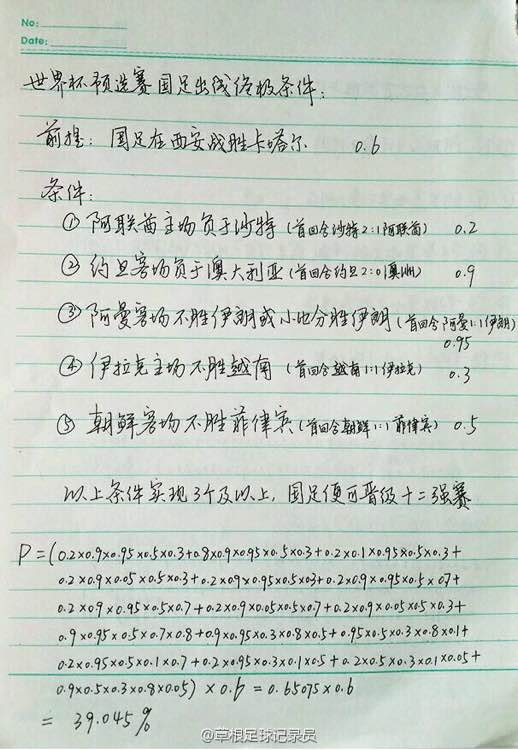 No:
Date:
世界杯预选赛国足出线终极条件:
前提: 国足在西安战胜卡塔尔 0.6
条件:
① 阿联酋主场负于沙特 (首回合沙特2:1阿联酋) 0.2
② 约旦客场负于澳大利亚 (首回合约旦2:0澳洲) 0.9
③ 阿曼客场不胜伊朗或小比分胜伊朗 (首回合阿曼1:1伊朗)
0.95
④ 伊拉克主场不胜越南 (首回合越南1:1伊拉克) 0.3
⑤ 朝鲜客场不胜菲律宾 (首回合朝鲜1:1菲律宾) 0.5
以上条件实现3个及以上, 国足便可晋级十二强赛
P=(0.2×0.9×0.95×0.5×0.3+0.8×0.9×0.95×0.5×0.3+0.2×0.1×0.95×0.5×0.3+
0.2×0.9×0.05×0.5×0.3+0.2×0.9×0.95×0.5×0.3+0.2×0.9×0.95×0.5×0.7+
0.2×0.9×0.95×0.5×0.7+0.2×0.9×0.05×0.5×0.7+0.2×0.9×0.05×0.5×0.3+
0.9×0.95×0.5×0.7×0.8+0.9×0.95×0.3×0.8×0.5+0.95×0.5×0.3×0.8×0.1+
0.2×0.95×0.5×0.1×0.7+0.2×0.95×0.3×0.1×0.5+0.2×0.5×0.3×0.1×0.05+
0.9×0.5×0.3×0.8×0.05) × 0.6 = 0.65075×0.6
= 39.045%
@草根足球记录员